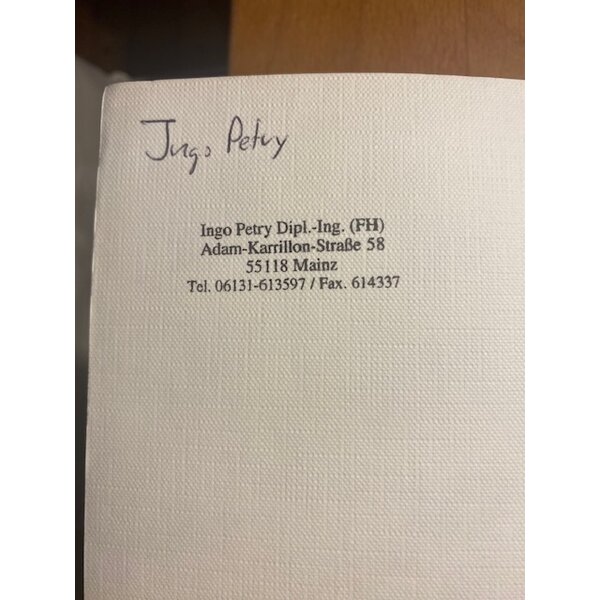 Ingo Petry
Ingo Petry Dipl.-Ing. (FH)
Adam-Karrillon-Straße 58
55118 Mainz
Tel. 06131-613597 / Fax. 614337